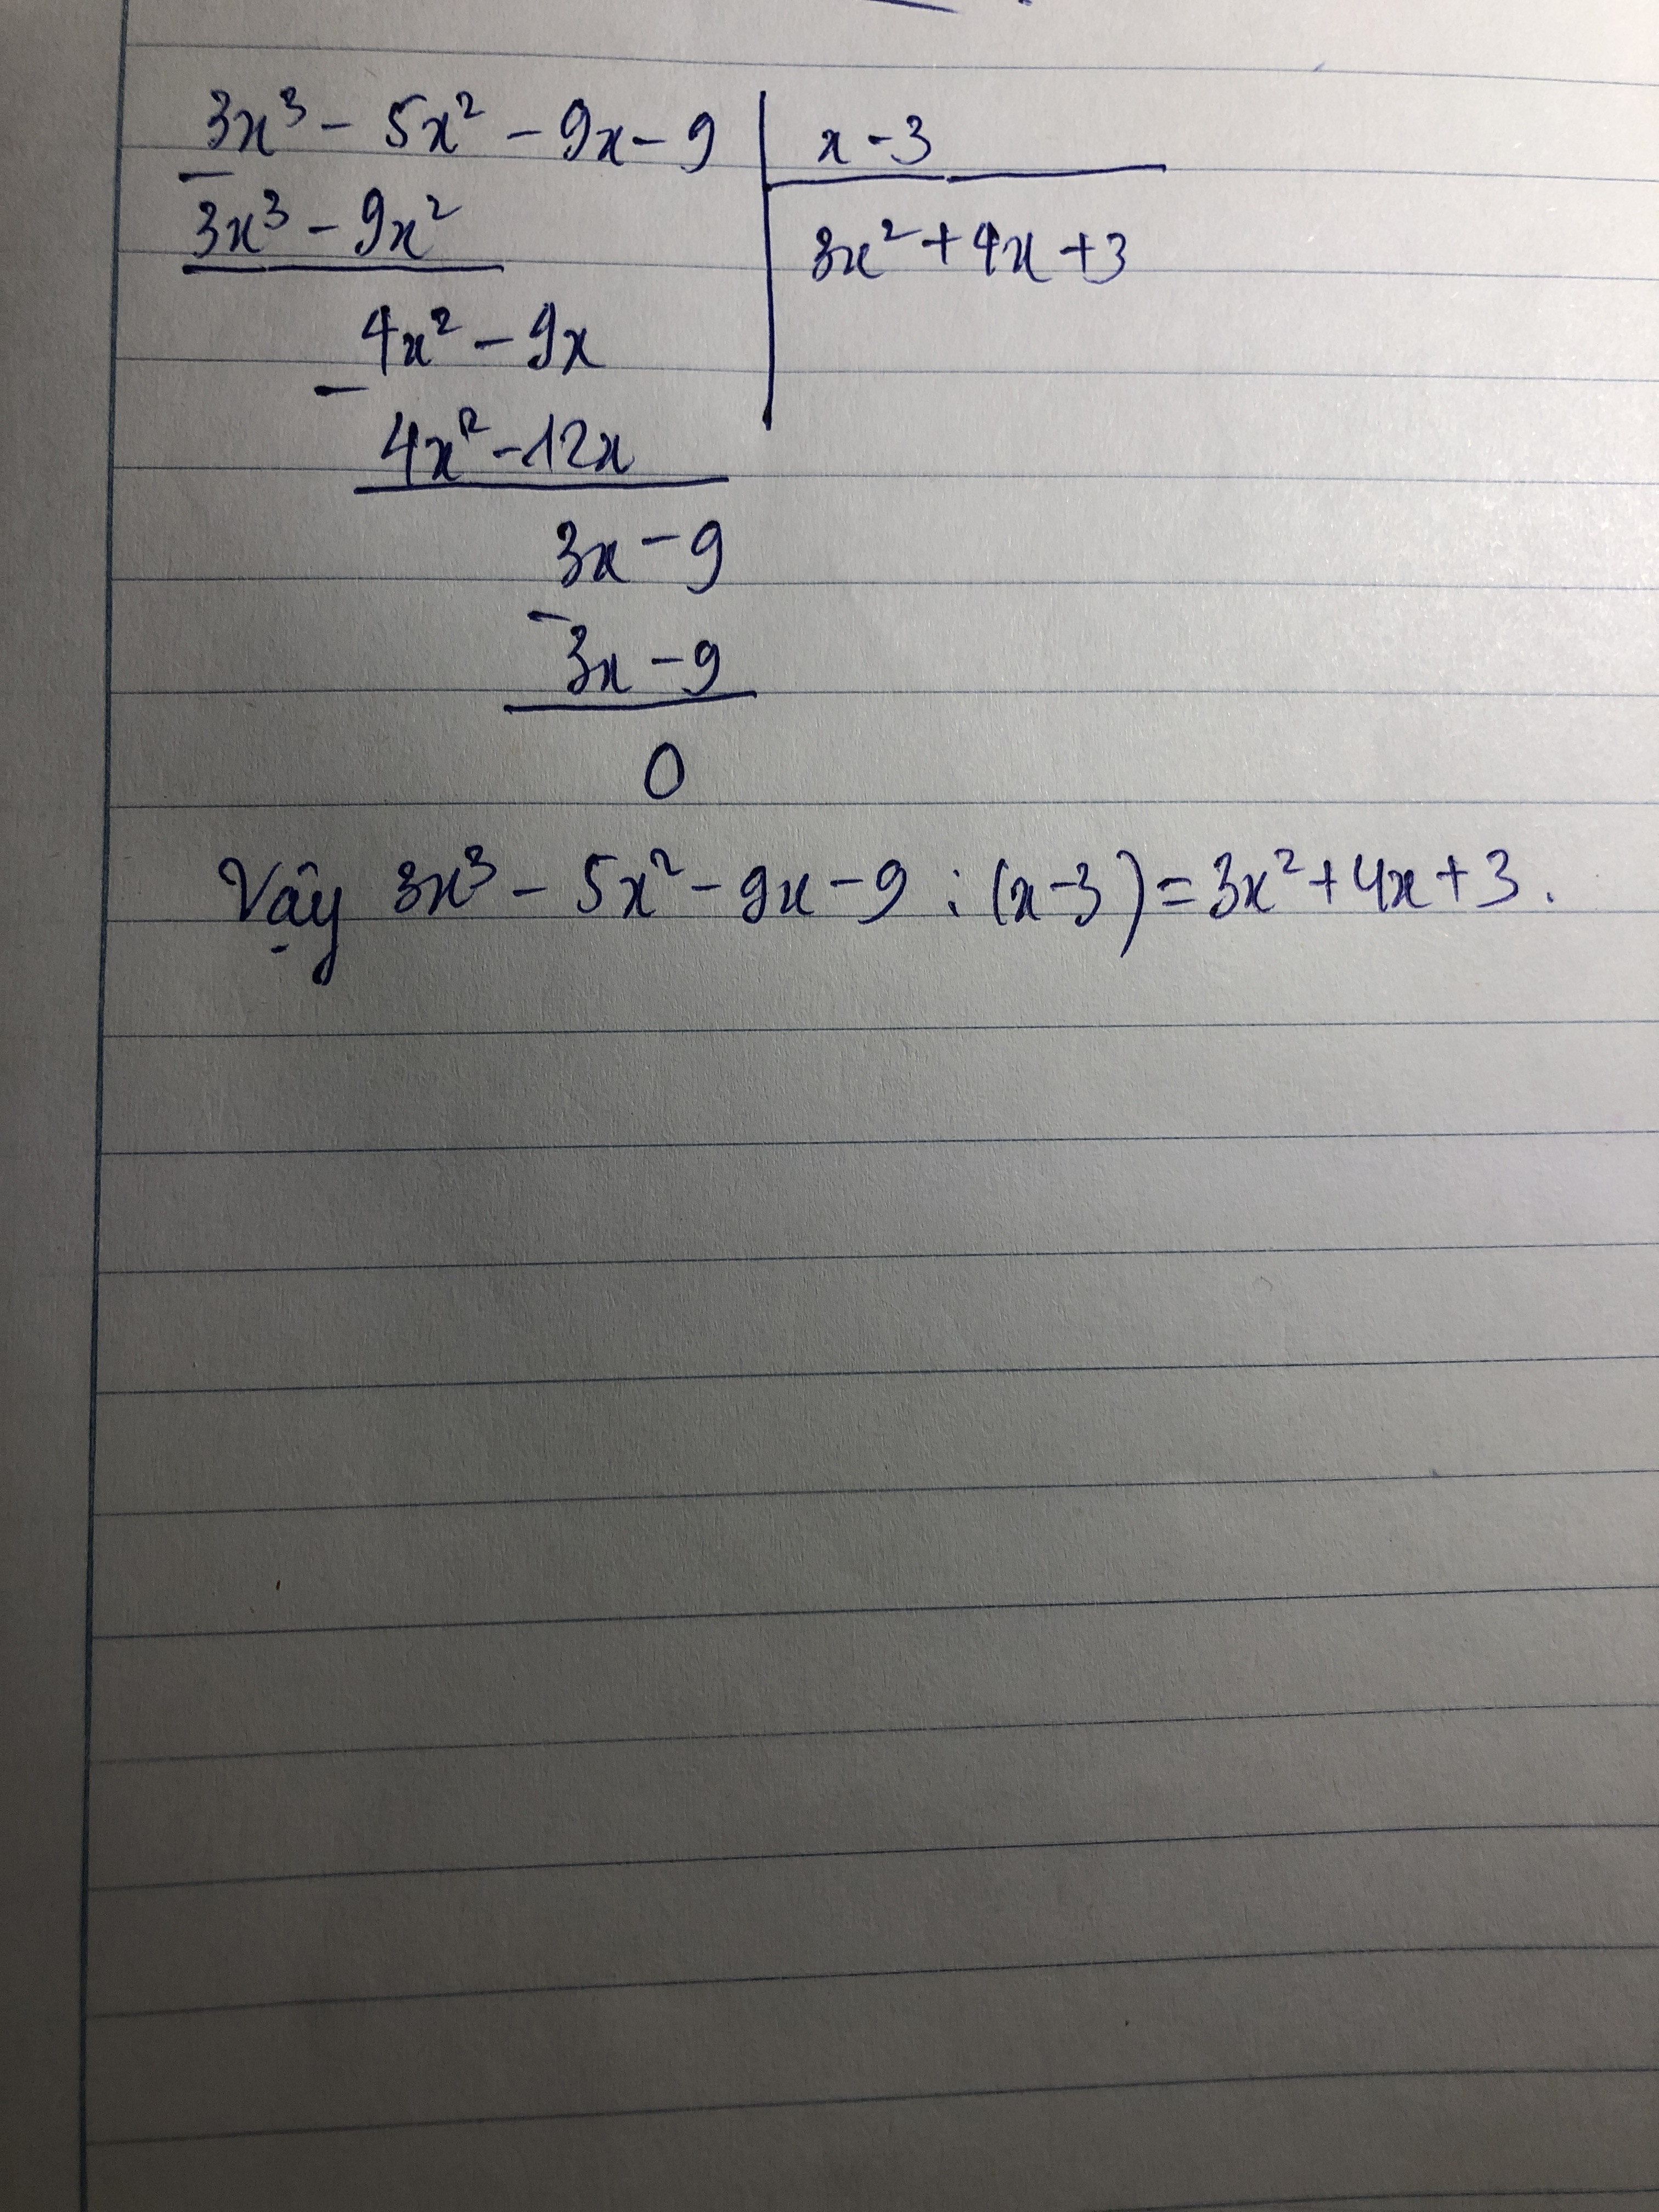 3x³ - 5x² - 9x - 9 | x - 3
- 3x³ - 9x² | 3x² + 4x + 3
4x² - 9x
- 4x² - 12x
3x - 9
- 3x - 9
0
Vậy 3x³ - 5x² - 9x - 9 : (x - 3) = 3x² + 4x + 3.